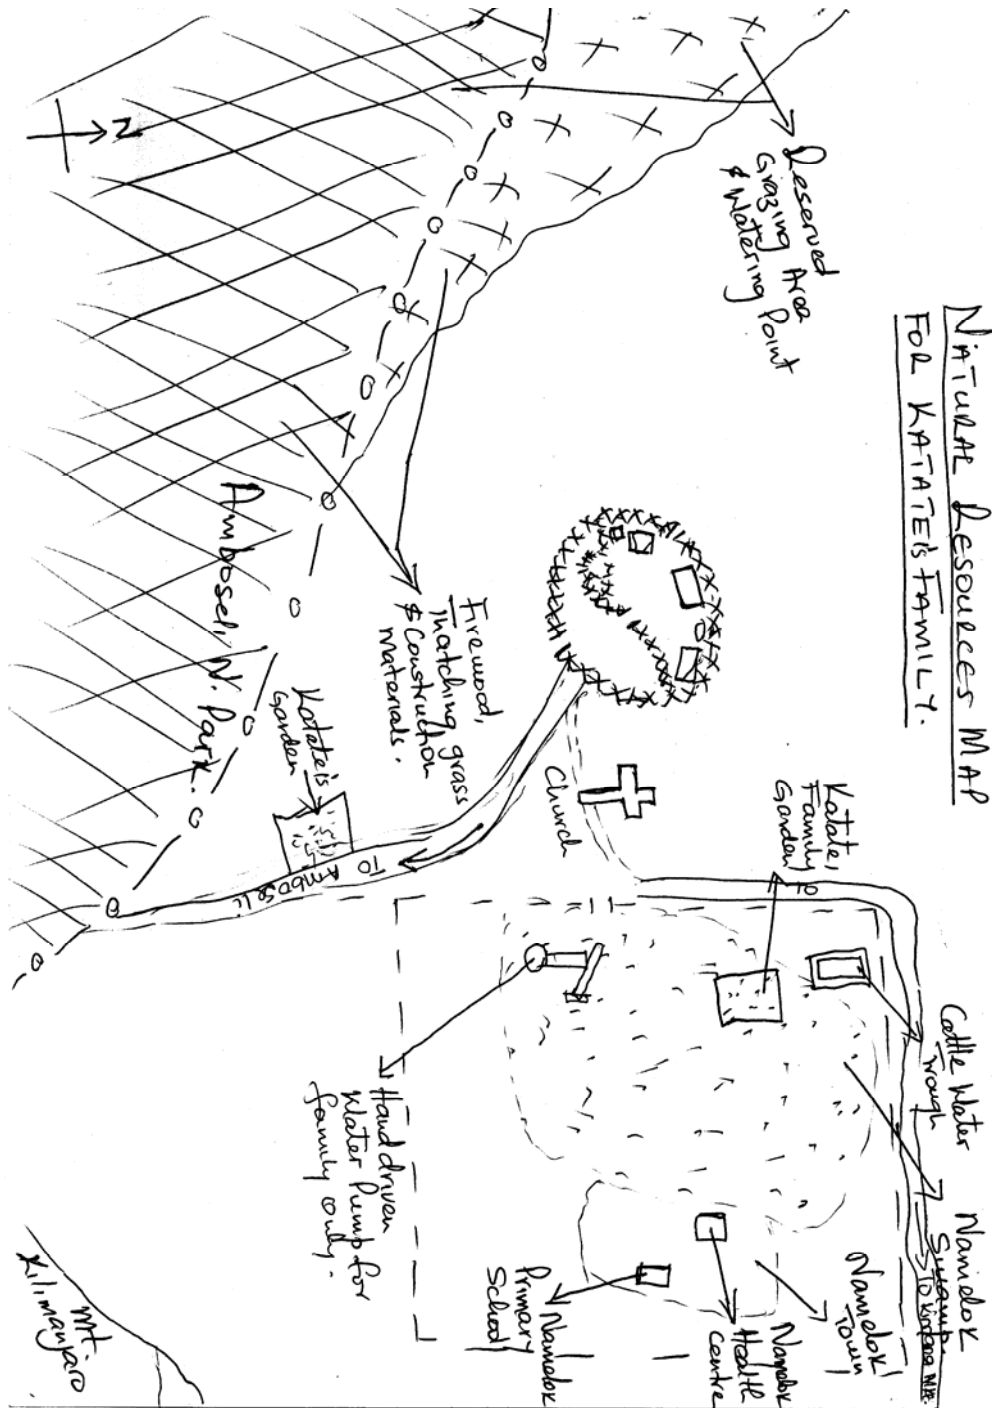 NATURAL RESOURCES MAP
FOR KATATE'S FAMILY.
Reserved
Grazing Area
& Watering Point
N
Amboseli N. Park.
Firewood,
Thatching grass
& Construction
Materials.
Katate's
Garden
To Amboseli
Church
Katate,
Family
Garden
To
Cattle Water
Trough
Namelok
Swamp
Namelok
Town
Namelok
Health
Centre
Namelok
Primary
School
Hand driven
Water Pump for
family only.
Mt.
Kilimanjaro